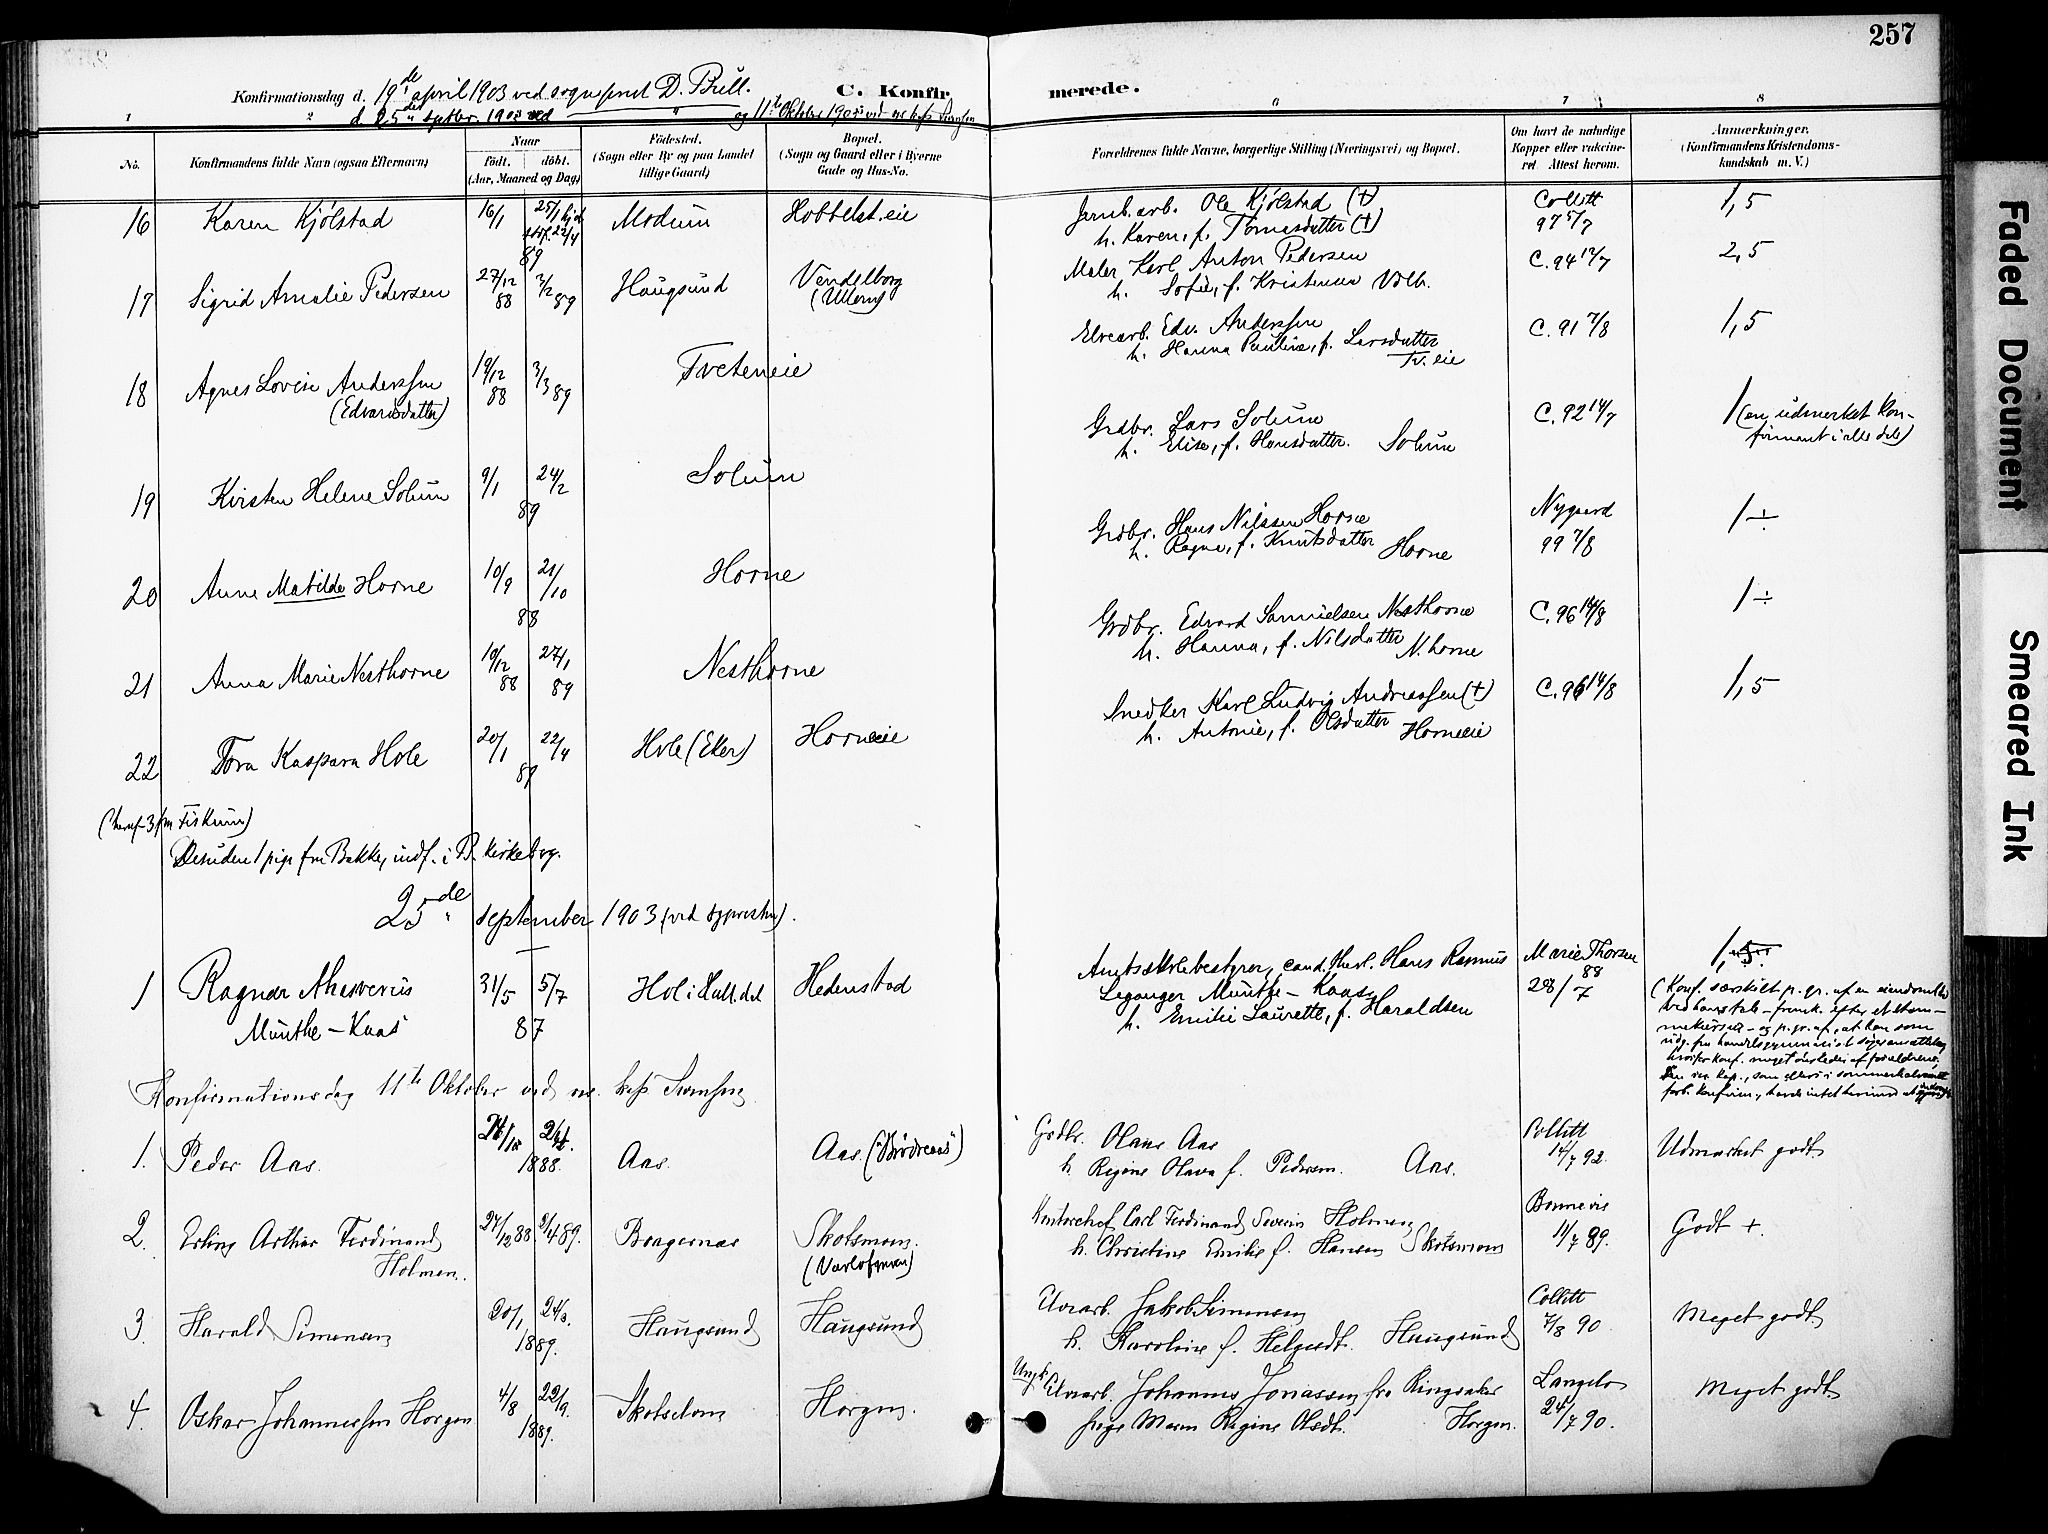 257
Konfirmationsdag d. 19de april 1903 ved sogneprest D. Bull.
C. Konfirmerede.
d. 25de septbr. 1903 ved " og 11te Oktober 1903 ved
1 2 6 7 8
No.
Konfirmandens fulde Navn (ogsaa Efternavn)
Naar
født. døbt.
(Aar, Maaned og Dag)
Fødested.
(Sogn eller By og paa Landet
tillige Gaard)
Bopæl.
(Sogn og Gaard eller i Byerne
Gade og Hus-No.
Forældrenes fulde Navne, borgerlige Stilling (Næringsvei) og Bopæl.
Om havt de naturlige
Kopper eller vakcine-
ret. Attest herom.
Anmærkninger.
(Konfirmandens Kristendoms-
kundskab m. V.)
16 Karen Kjølstad 16/1 25/1 hjd. stdf. 22/4 89 Modum Hobbelst. eie
Jernb. arb. Ole Kjølstad (†)
h. Karen, f. Tomasdatter (†)
Collett 97 5/7 1,5
17 Sigrid Amalie Pedersen 27/12 88 3/2 89 Haugsund Vendelborg (Ullern)
Maler Karl Anton Pedersen
h. Sofie, f. Kristensen Vdlb.
C. 94 12/7 2,5
18 Agnes Lovise Anderssen (Edvardsdatter) 19/12 88 3/3 89 Treteneie
Elvearb. Edv. Anderssen
h. Hanna Pauline, f. Larsdatter
Tr. eie
C. 91 7/8 1,5
19 Kirsten Helene Solum 9/1 24/2 89 Solum
Grdbr. Lars Solum
h. Elise, f. Hansdatter. Solum
C. 92 14/7 1 (en udmerket kon-
firmant i alle dele)
20 Anne Matilde Horne 10/9 21/10 88 Horne
Grdbr. Hans Nilssen Horne
h. Ragne, f. Knutsdatter Horne
Nygaard 99 7/8 1 ÷
21 Anna Marie Nesthorne 10/12 88 27/1 89 Nesthorne
Grdbr. Edvard Samuelsen Nesthorne
h. Hanna, f. Nilsdatter N. horne
C. 96 14/8 1 ÷
22 Tora Kaspara Hole 20/1 22/4 89 Hole (Eker) Horneeie
Snedker Karl Ludvig Andreassen (†)
h. Antonie, f. Olsdatter Horneeie
C. 96 14/8 1,5
(heraf 3 fra Fiskum)
Desuden 1 pige fra Bakke, indf. i B. kirkebog.
25de september 1903 (ved sognepresten).
1 Ragnar Ahasverus Munthe-Kaas 31/5 5/7 87 Hol i Hall.del Hedenstad
Amtsskolebestyrer, cand. theol. Hans Rasmus
Leganger Munthe-Kaas
h. Emilie Laurette, f. Haraldsen
Marie Thorsen 88 28/7 1,5
(Konf. særskilt p. gr. af en eiendomme
Konfirmationsdag 11te Oktober ved
1. Peder Aas. 1888. Aas. Aas. ("Brødreaas")
Grdbr. Olaus Aas
h. Regine Olava f. Pedersen. Aas.
Collett 14/7 92. Udmærket godt
2. Erling Arthur Ferdinand Holmen. 27/12 88 2/4 89. Bragernæs Skotsmoen.
Kontorchef Carl Ferdinand Severin Holmen
h. Christine Emilie f. Hansen Skotsmoen
Bonnevie 11/7 89. Godt +.
3. Harald Simensen 20/1 24/3. 1889. Haugsund Haugsund
Elvearb. Jakob Simensen
h. Karoline f. Helgesdt. Haugsund
Collett 7/8 90 Meget godt
4. Oskar Johannessen Horgen 4/8 22/9. 1889. Skotselven Horgen.
Ungk. Elvearb. Johannes Jonassen fra Ringsaker
pige Maren Regine Olsdt. Horgen.
Langelo 24/7 90. Meget godt.
Faded Document
Smeared Ink